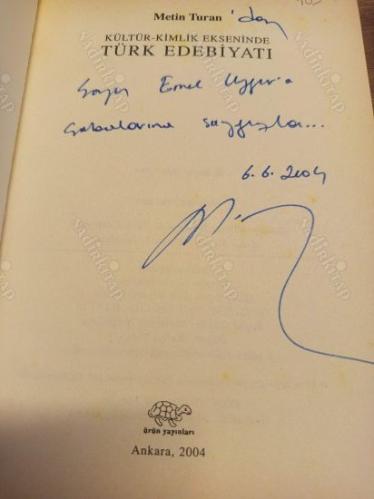 Metin Turan 'dan
KÜLTÜR-KİMLİK EKSENİNDE
TÜRK EDEBİYATI
Sayın Emel Uygur'a
çabalarına saygıyla...
6.6.2004
ürün yayınları
Ankara, 2004
nadirkitap